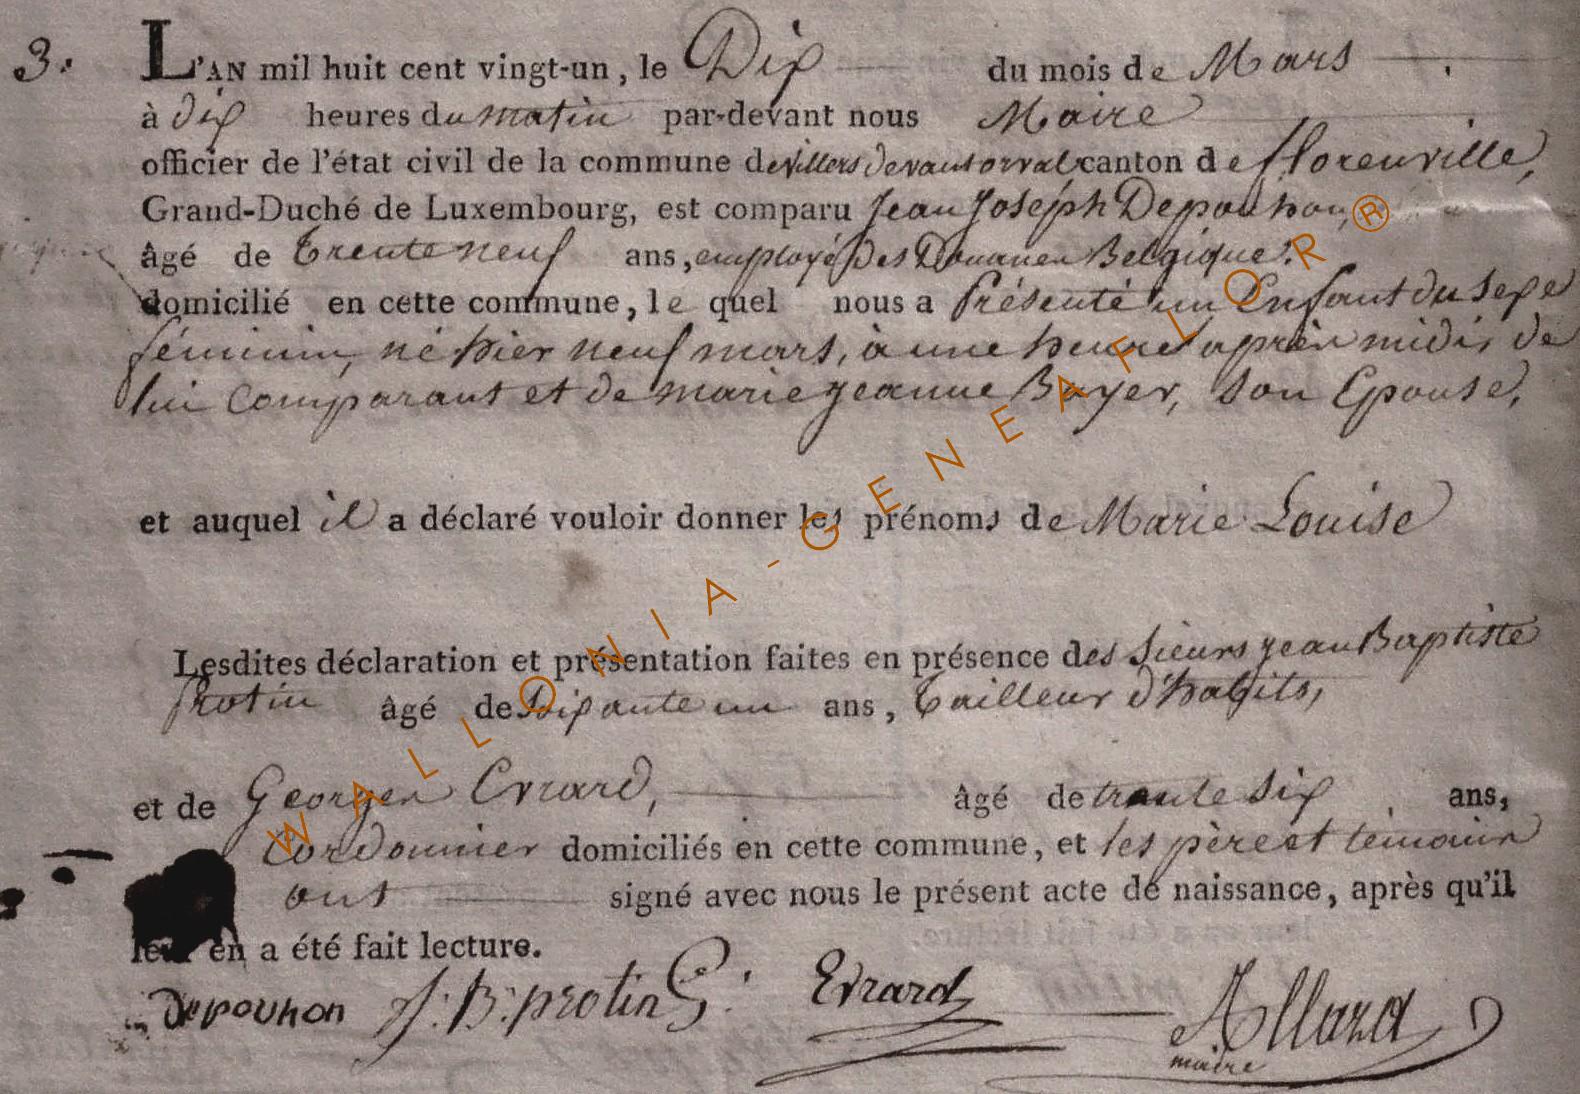 3. L'AN mil huit cent vingt-un, le Dix du mois de Mars
à dix heures du matin par-devant nous Maire
officier de l'état civil de la commune de villers devant orval canton de florenville,
Grand-Duché de Luxembourg, est comparu Jean Joseph Depouhon,
âgé de trente neuf ans, employé des Douanes Belgique.
domicilié en cette commune, le quel nous a Présenté un Enfant du sexe
féminin, né hier neuf mars, à une heure après midi, de
lui comparant et de marie jeanne Bayer, son Epouse,
et auquel il a déclaré vouloir donner les prénoms de Marie Louise
Lesdites déclaration et présentation faites en présence des sieurs jean Baptiste
Protin âgé de soixante un ans, tailleur d'habits,
et de Georges Evrard, âgé de trente six ans,
Cordonnier domiciliés en cette commune, et les père et témoins
ont signé avec nous le présent acte de naissance, après qu'il
leur en a été fait lecture.
depouhon J: B: protin G: Evrard
maire
WALLONIA-GENEAFLOR®